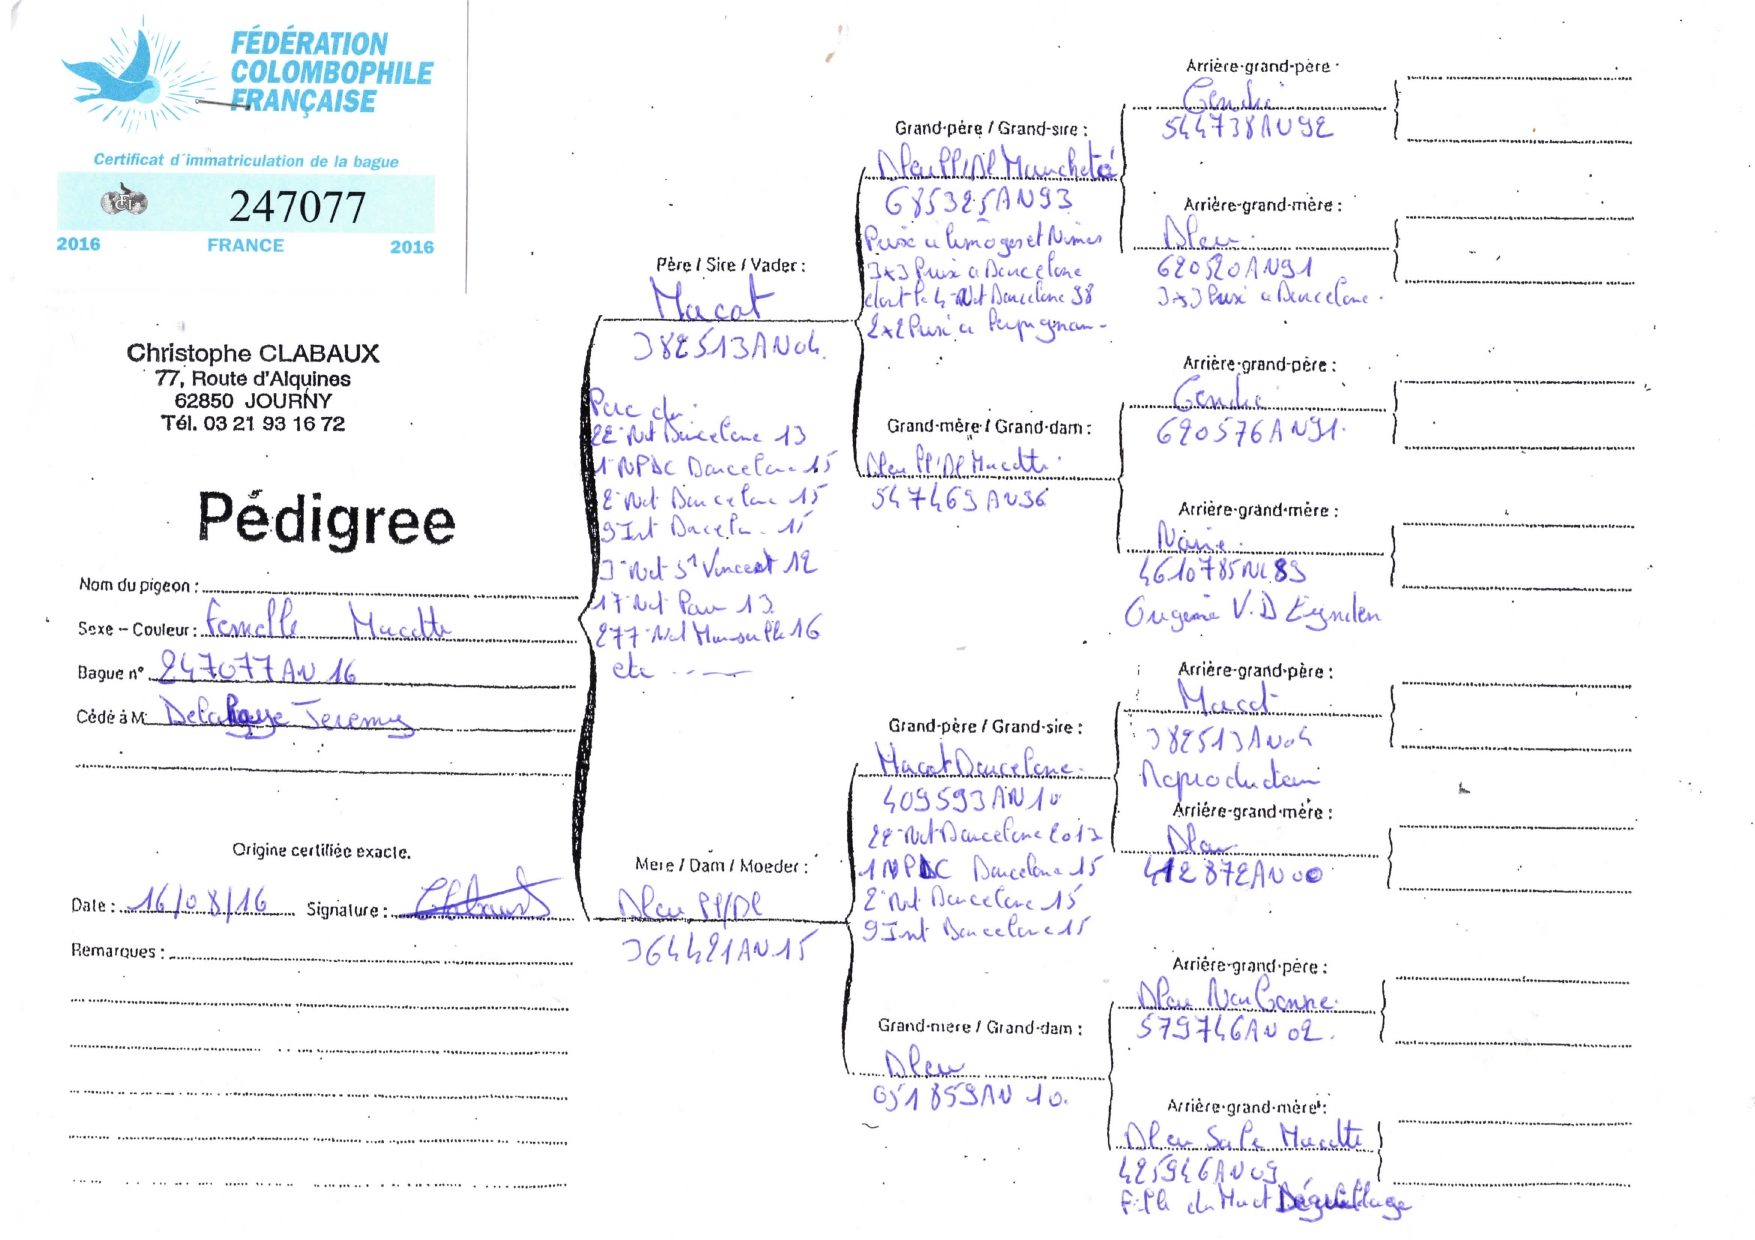 FÉDÉRATION
COLOMBOPHILE
FRANÇAISE
Certificat d'immatriculation de la bague
247077
2016 FRANCE 2016
Christophe CLABAUX
77, Route d'Alquines
62850 JOURNY
Tél. 03 21 93 16 72
Pédigree
Nom du pigeon :
Sexe – Couleur : Femelle Macotte
Bague n° 247077AN 16
Cédé à M: Delahaye Jeremy
Origine certifiée exacte.
Date : 16/08/16 Signature :
Remarques :
Père / Sire / Vader :
Macot
382513AN04
Père du
22 Nat Barcelone 13
1 NPDC Barcelone 15
2 Nat Barcelone 15
9 Int Barcelone 15
3 Nat St Vincent 12
17 Nat Pau 13
277 Nat 16
etc
Mere / Dam / Moeder :
Bleu PP/Bl
364421AN 15
Grand-père / Grand-sire :
Bleu PP/Bl Mancheté
685325AN93
Prix à Limoges et Nimes
3x3 Prix à Barcelone
dont le 4 Nat Barcelone 98
2x2 Prix à Perpignan
Grand-mère / Grand-dam :
Bleu PP/Bl Macotte
547469AN96
Grand-père / Grand-sire :
Macot Barcelone
409593AN10
22 Nat Barcelone 2013
1 NPDC Barcelone 15
2 Nat Barcelone 15
9 Int Barcelone 15
Grand-mere / Grand-dam :
Bleu
051859AN 10
Arrière-grand-père :
Cendré
544738AN92
Arrière-grand-mère :
Bleu
620520AN91
3x3 Prix à Barcelone
Arrière-grand-père :
Cendré
620576AN91
Arrière-grand-mère :
Noire
4610785NL89
Origine V.D Eynden
Arrière-grand-père :
Macot
382513AN04
Reproducteur
Arriére-grand-mère :
Bleu
412872AN00
Arrière-grand-père :
Bleu Narbonne
579746AN02
Arrière-grand-mère :
Bleu Sale Macotte
425946AN09
du Macot